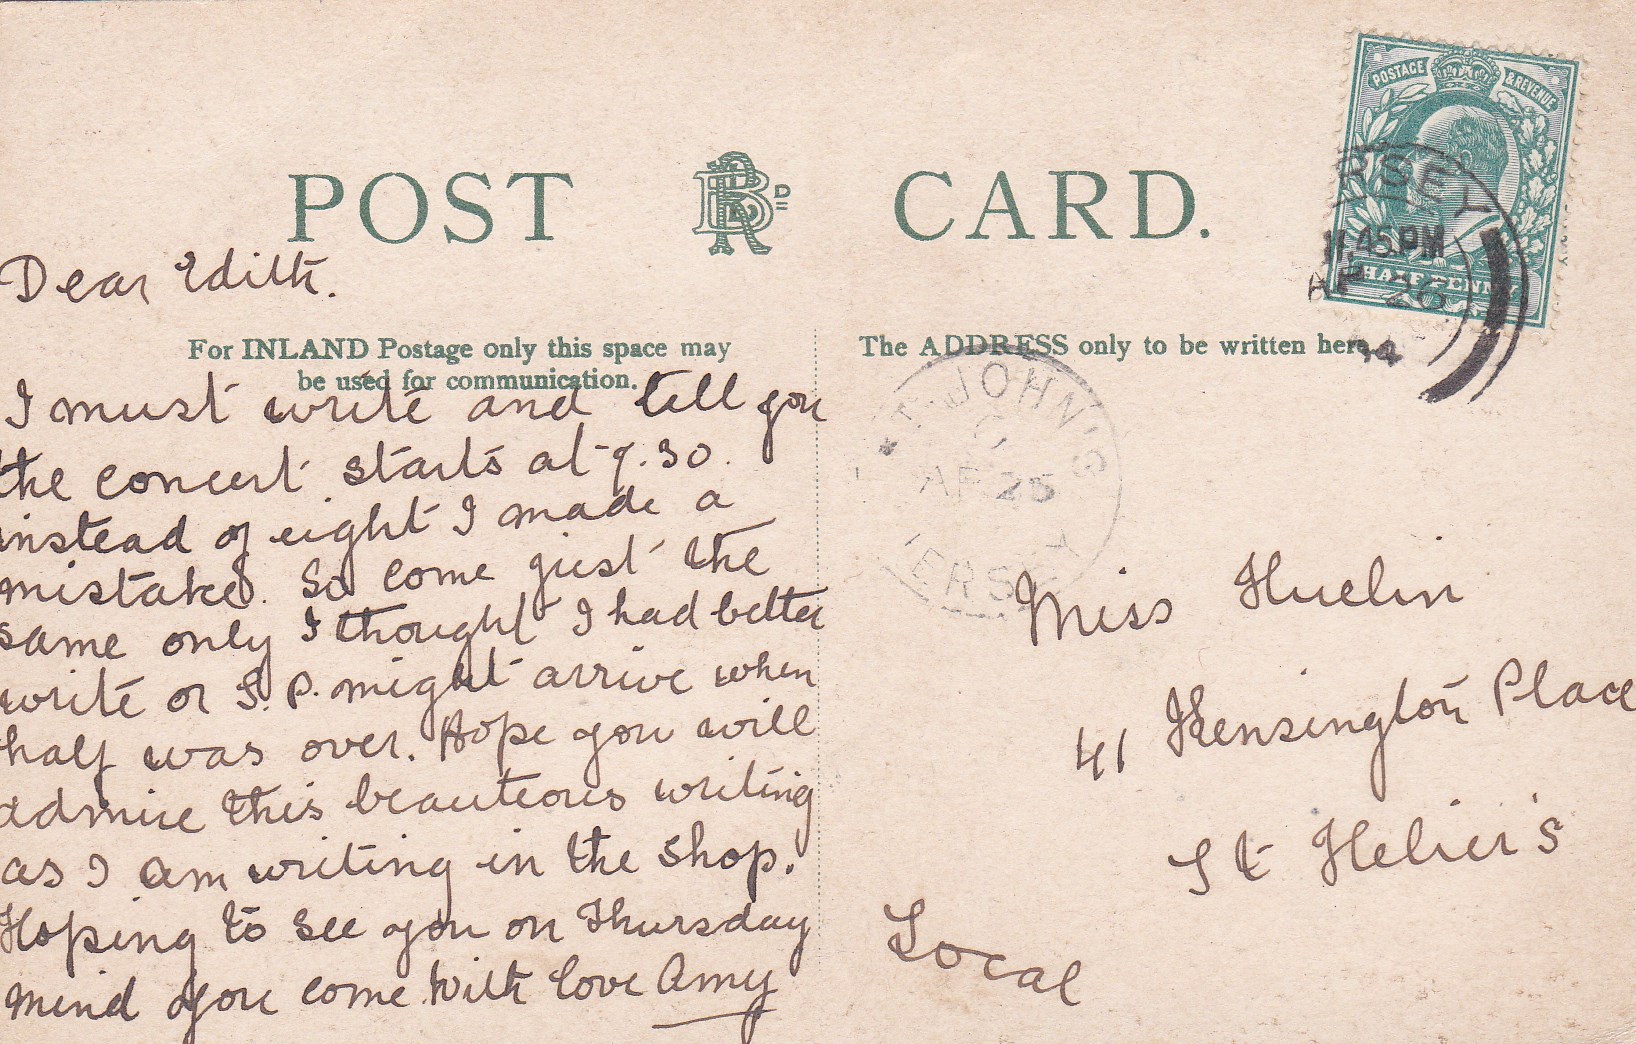 POST CARD.
POSTAGE & REVENUE
HALF PENNY
RSEY
45 PM
AP 26
14
For INLAND Postage only this space may
be used for communication.
The ADDRESS only to be written here
T. JOHN'S
AP 25
JERSEY
Dear Edith.
I must write and tell you
the concert starts at 7.30.
instead of eight I made a
mistake. So come just the
same only I thought I had better
write or S. P. might arrive when
half was over. Hope you will
admire this beauteous writing
as I am writing in the shop.
Hoping to see you on Thursday
mind you come with love Amy
Miss Huelin
41 Kensington Place
St Helier's
Local